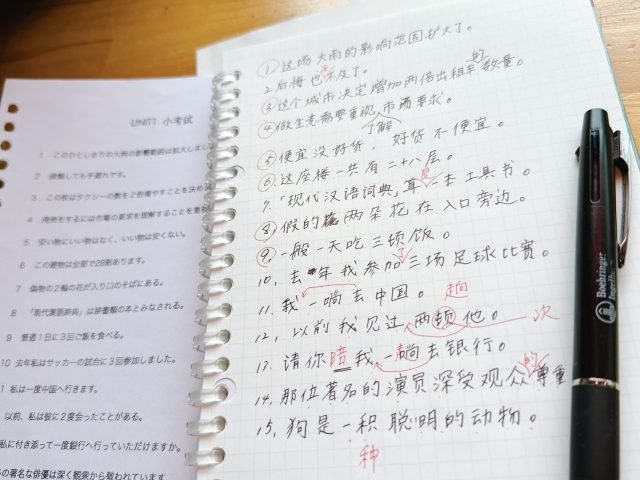 UNIT1 小考试
1 このひとしきりの大雨の影響範囲は拡大しまし
2 後悔しても手遅れです。
3 この街はタクシーの数を2倍増やすことを決め
4 商売をするには市場の要求を理解することを重
5 安い物にいい物はなく、いい物は安くない。
6 この建物は全部で28階あります。
7 偽物の2輪の花が入り口のそばにある。
8 「現代漢語辞典」は辞書類の本とみなされる。
9 普通1日に3回ご飯を食べる。
10 去年私はサッカーの試合に3回参加しました。
1 私は一度中国へ行きます。
以前、私は彼に2度会ったことがある。
私に付き添って一度銀行へ行っていただけますか。
の著名な俳優は深く観衆から敬われています
① 这场大雨的影响范围扩大了。
2 后悔也来不及了。
③ 这个城市决定增加两倍出租车的数量。
④ 做生意需要重视了解市场要求。
⑤ 便宜没好货，好货不便宜。
⑥ 这座楼一共有二十八层。
7.「现代汉语词典」算是一本工具书。
⑧ 假的两朵花在入口旁边。
⑨ 一般一天吃三顿饭。
10. 去年我参加了三场足球比赛。
11. 我一趟去中国。 趟
12. 以前我见过两顿他。 次
13. 请你陪我一趟去银行。
14. 那位著名的演员深受观众的尊重
15. 狗是一积聪明的动物。
种
Boehringer
Ingelheim